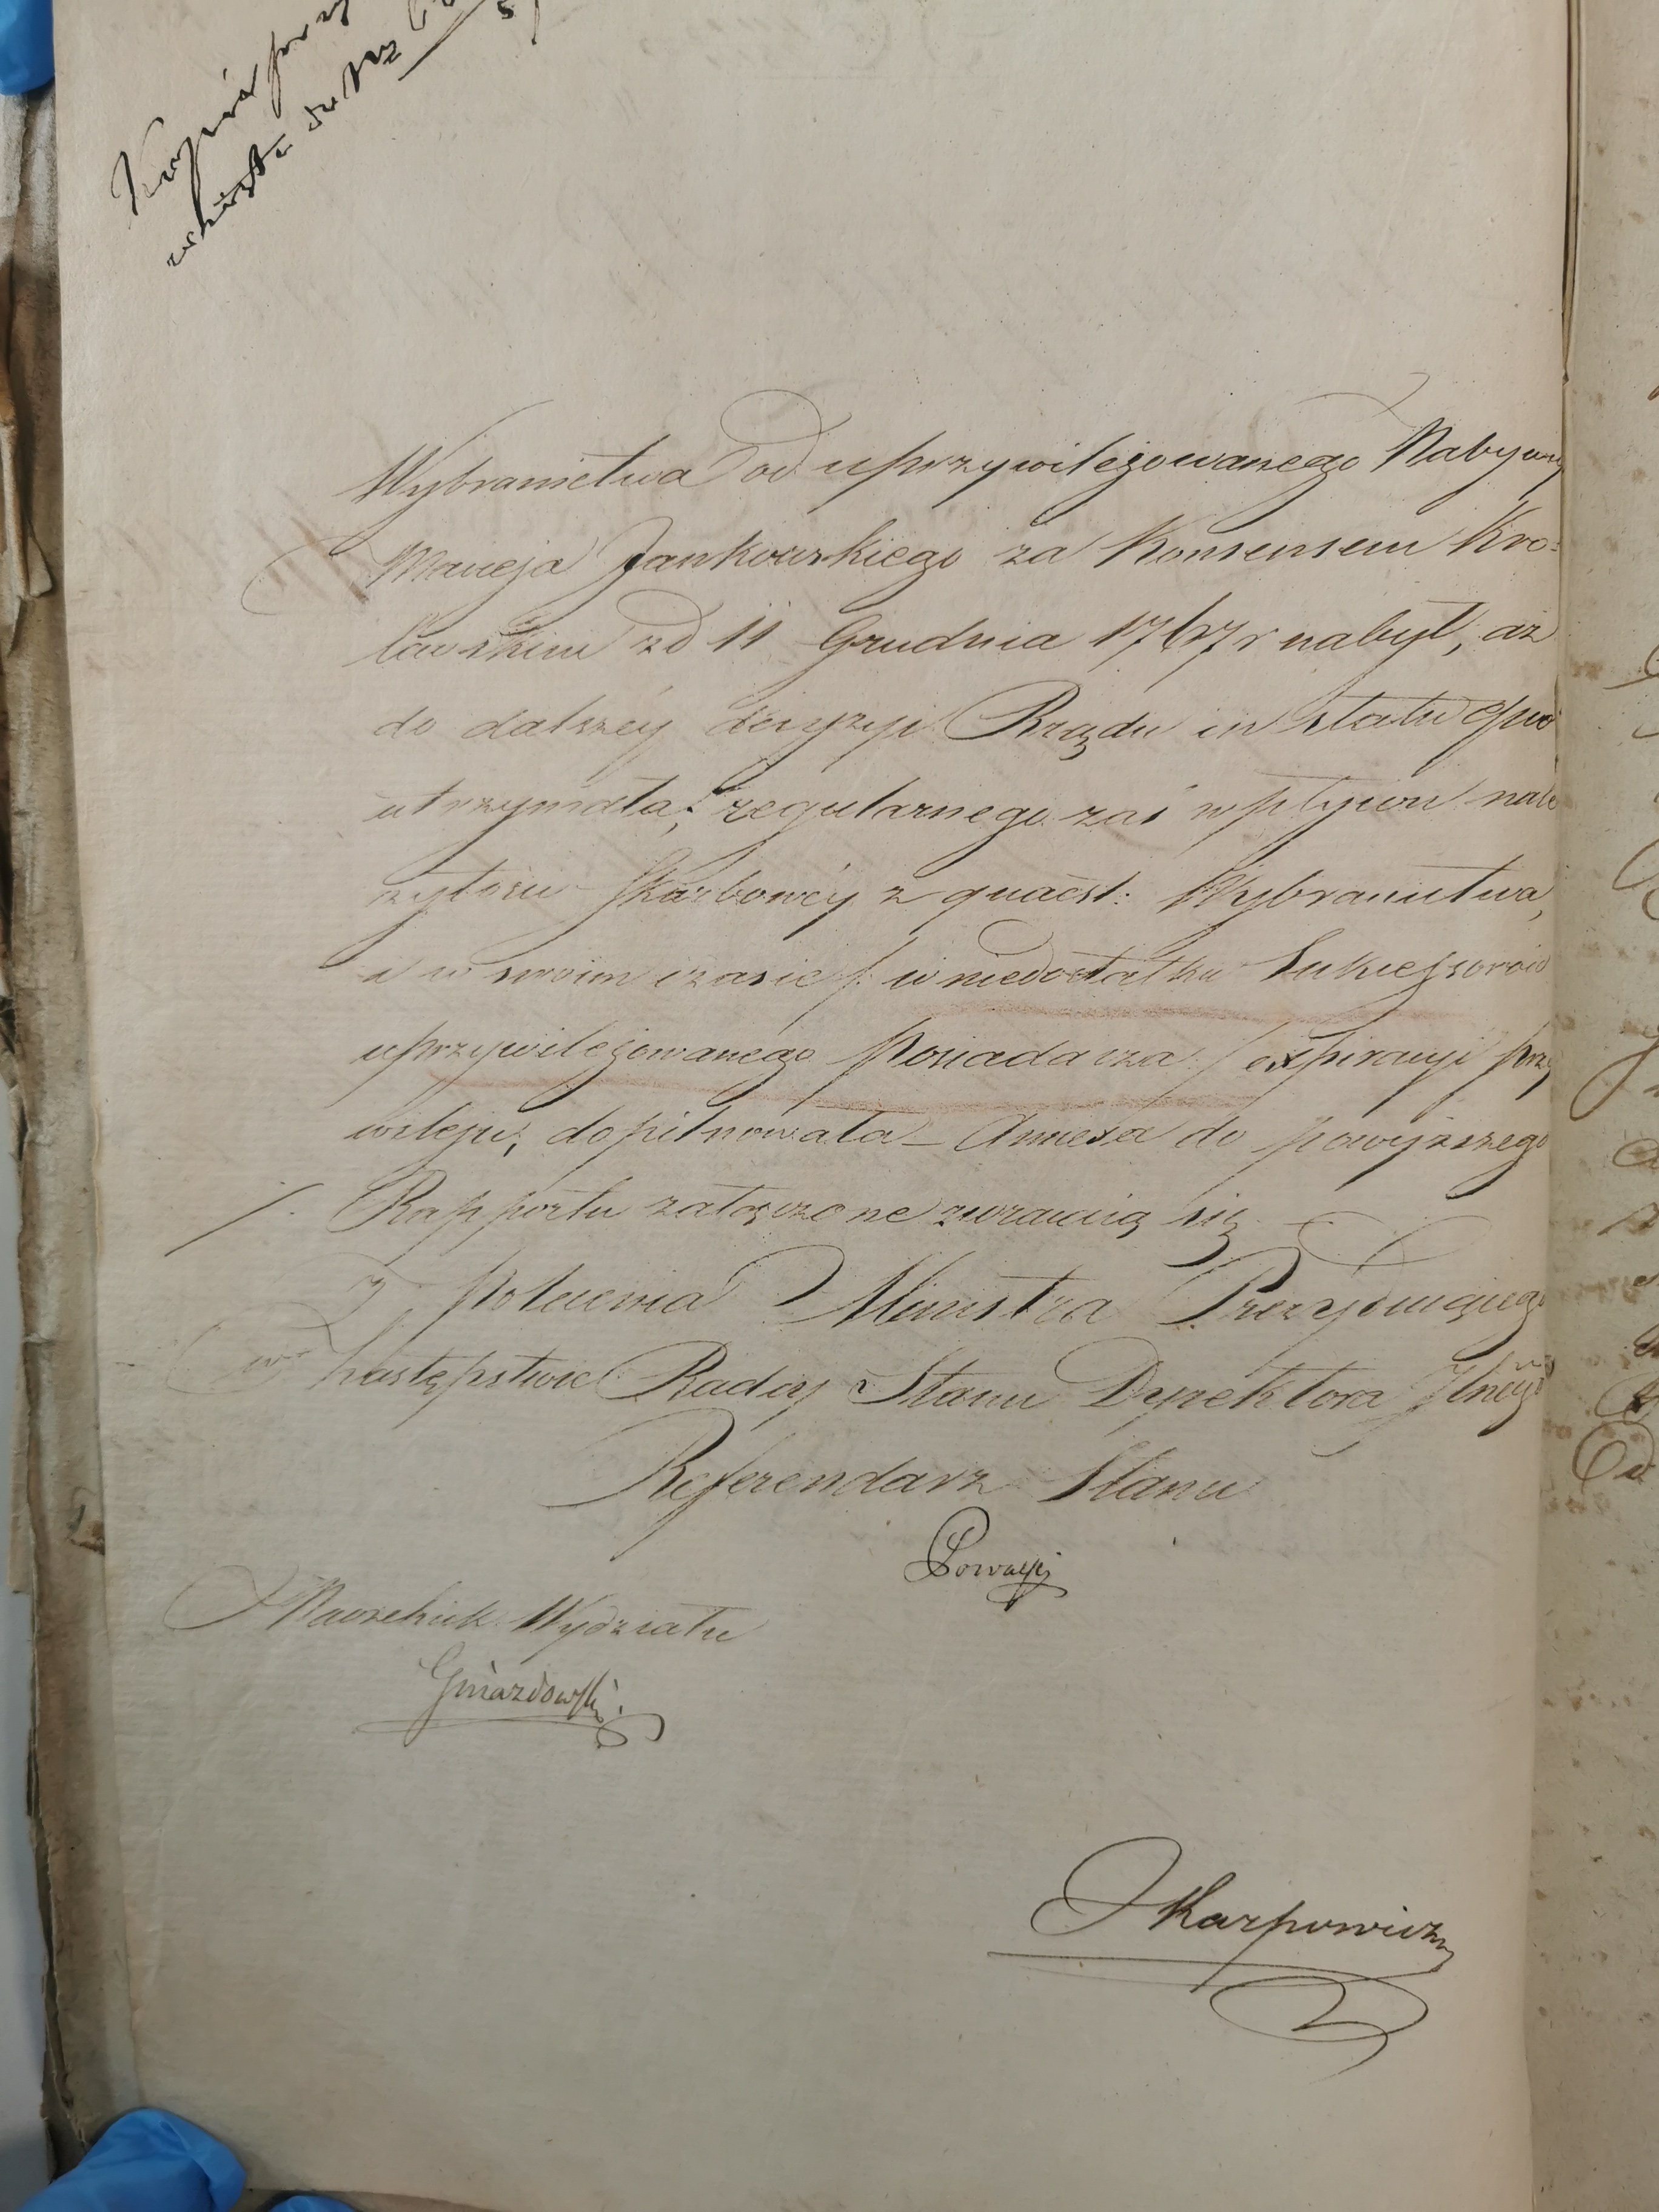 Kopią
do Nr
Wybraniectwa od uprzywilejowanego Nabywcy
Macieja Jankowskiego za Konsensem Kró=
lewskim zd 11 Grudnia 1767 r nabył, aż
do dalszéy decyzyi Rządu in statu quo
utrzymała; regularnego zaś wpływu nale
żytości Skarbowéy z quaest: Wybraniectwa,
i w swoim czasie /: w niedostatku Sukcessorów
uprzywilejowanego Posiadacza :/ exspiracyi przy
wileju, dopilnowała – Annexa do powyższego
/. Rapportu załączone zwracaią się
Z Polecenia Ministra Prezyduiącego
w zastępstwie Radcy Stanu Dyrektora Jlnego
Referendarz Stanu
Naczelnik Wydziału
Gniazdowski.
Karpowicz